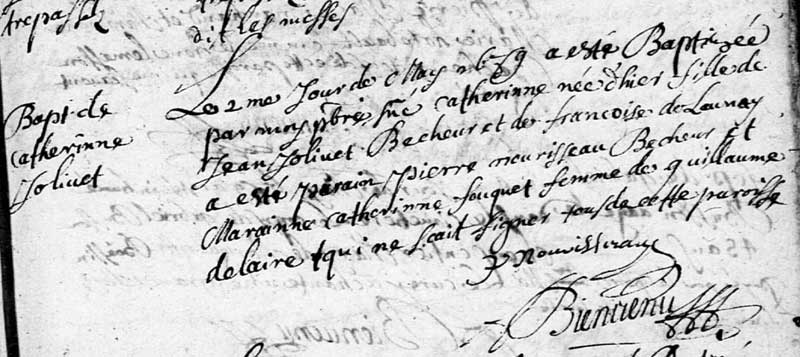 trepassez
dit les messes
Bapt de
Catherinne
Jolivet
Le 2me Jour de May a esté Baptizée
par moy pbre sné Catherinne née d'hier fille de
Jean Jolivet Becheur et de françoise de Launay
a esté parain pierre nourisseau Becheur Et
Marainne Catherinne fouquet femme de guillaume
delaire qui ne scait signer tous de cette paroisse
P Nourisseau
Bienvenu